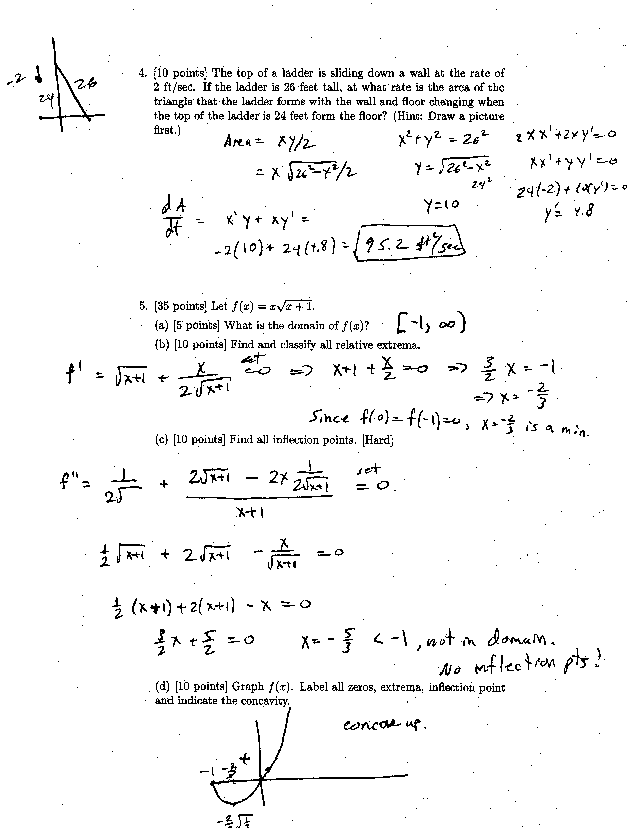 -2 24 26
4. [10 points] The top of a ladder is sliding down a wall at the rate of
2 ft/sec. If the ladder is 26 feet tall, at what rate is the area of the
triangle that the ladder forms with the wall and floor changing when
the top of the ladder is 24 feet form the floor? (Hint: Draw a picture
first.)
Area = xy/2 x² + y² = 26² 2xx' + 2yy' = 0
= x √(26²-x²)/2 y = √(26²-x²) xx' + yy' = 0
24² 24(-2) + 10(y') = 0
dA/dt = x'y + xy' = y = 10 y' = 4.8
-2(10) + 24(4.8) = 95.2 ft²/sec
5. [35 points] Let f(x) = x√(x+1).
(a) [5 points] What is the domain of f(x)? [-1, ∞)
(b) [10 points] Find and classify all relative extrema.
f' = √(x+1) + x/(2√(x+1)) set = 0 ⇒ x+1 + x/2 = 0 ⇒ 3/2 x = -1
⇒ x = -2/3
Since f(0) = f(-1) = 0, x = -2/3 is a min.
(c) [10 points] Find all inflection points. [Hard]
f'' = 1/(2√) + (2√(x+1) - 2x 1/(2√(x+1)))/(x+1) set = 0.
1/2 √(x+1) + 2√(x+1) - x/√(x+1) = 0
1/2 (x+1) + 2(x+1) - x = 0
3/2 x + 5/2 = 0 x = -5/3 < -1, not in domain.
No inflection pts!
(d) [10 points] Graph f(x). Label all zeros, extrema, inflection point
and indicate the concavity.
concave up.
-1 -2/3